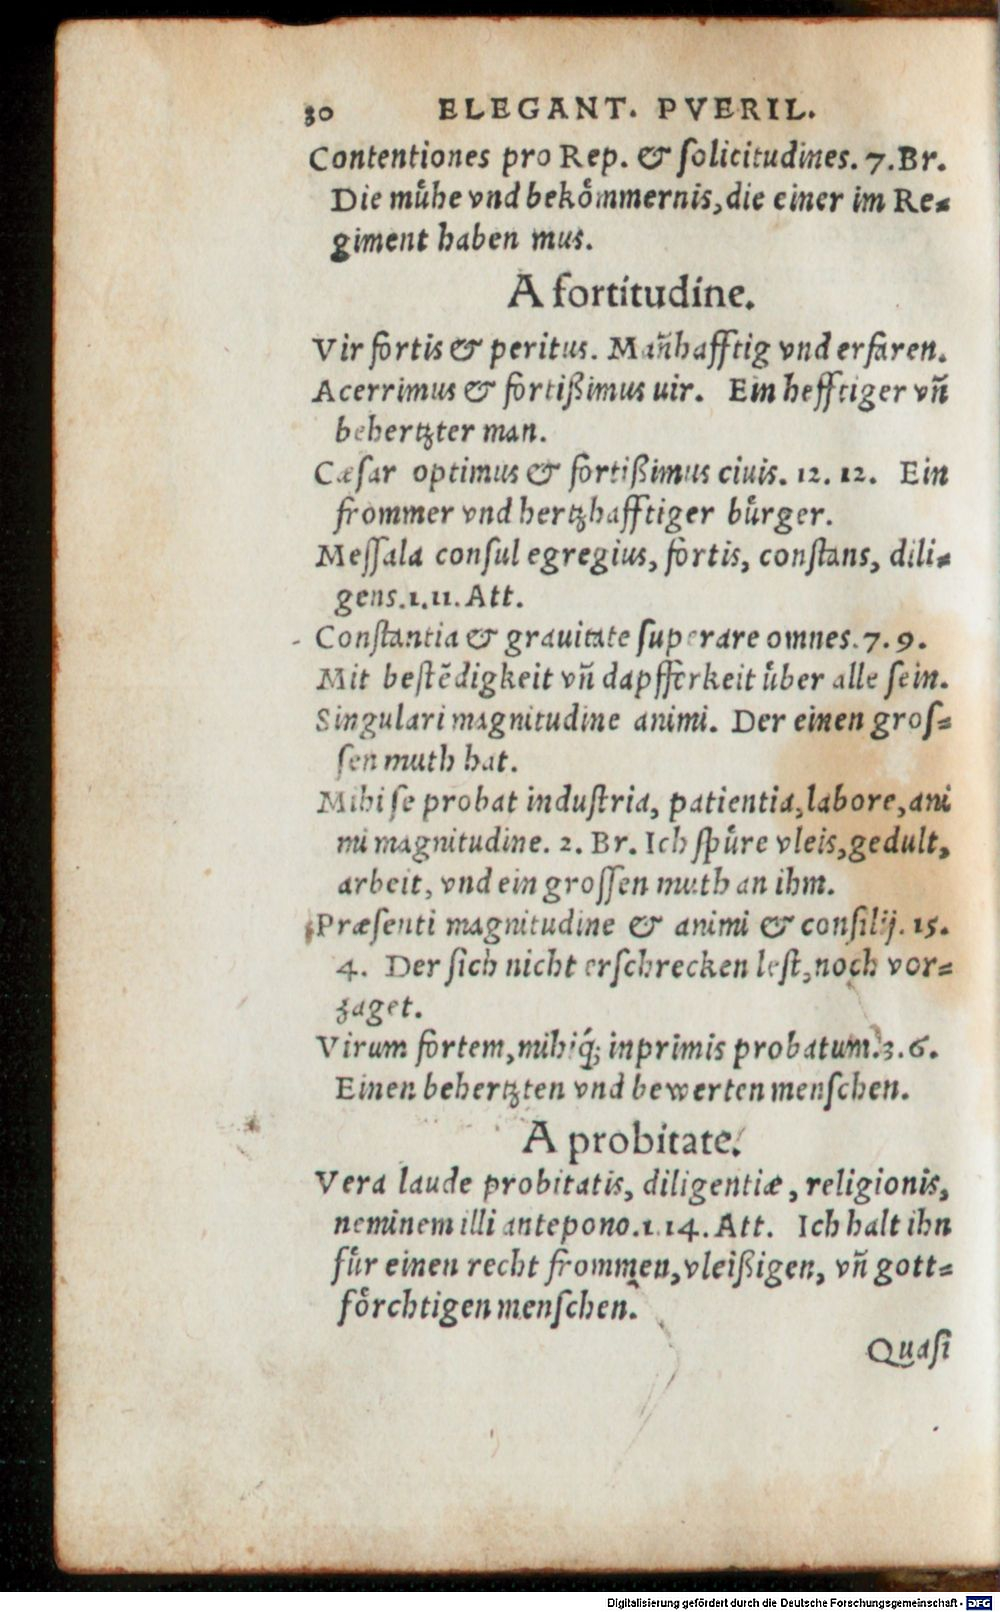 30 ELEGANT. PVERIL.
Contentiones pro Rep. & ſolicitudines. 7. Br.
Die muͤhe vnd bekoͤmmernis, die einer im Re⸗
giment haben mus.
A fortitudine.
Vir fortis & peritus. Man̄hafftig vnd erfaren.
Acerrimus & fortißimus uir. Ein hefftiger vn̄
behertzter man.
Cæſar optimus & fortißimus ciuis. 12. 12. Ein
frommer vnd hertzhafftiger buͤrger.
Meſſala conſul egregius, fortis, conſtans, dili⸗
gens. 1. 11. Att.
Conſtantia & grauitate ſuperare omnes. 7. 9.
Mit beſtēdigkeit vn̄ dapfferkeit uͤber alle ſein.
Singulari magnitudine animi. Der einen groſ⸗
ſen muth hat.
Mihi ſe probat induſtria, patientia, labore, ani
mi magnitudine. 2. Br. Ich ſpuͤre vleis, gedult,
arbeit, vnd ein groſſen muth an ihm.
Præſenti magnitudine & animi & conſilij. 15.
4. Der ſich nicht erſchrecken leſt, noch vor⸗
zaget.
Virum fortem, mihiq́; inprimis probatum. 3. 6.
Einen behertzten vnd bewerten menſchen.
A probitate.
Vera laude probitatis, diligentiæ, religionis,
neminem illi antepono. 1. 14. Att. Ich halt ihn
fuͤr einen recht frommen, vleißigen, vn̄ gott⸗
foͤrchtigen menſchen.
Quaſi
Digitalisierung gefördert durch die Deutsche Forschungsgemeinschaft - DFG